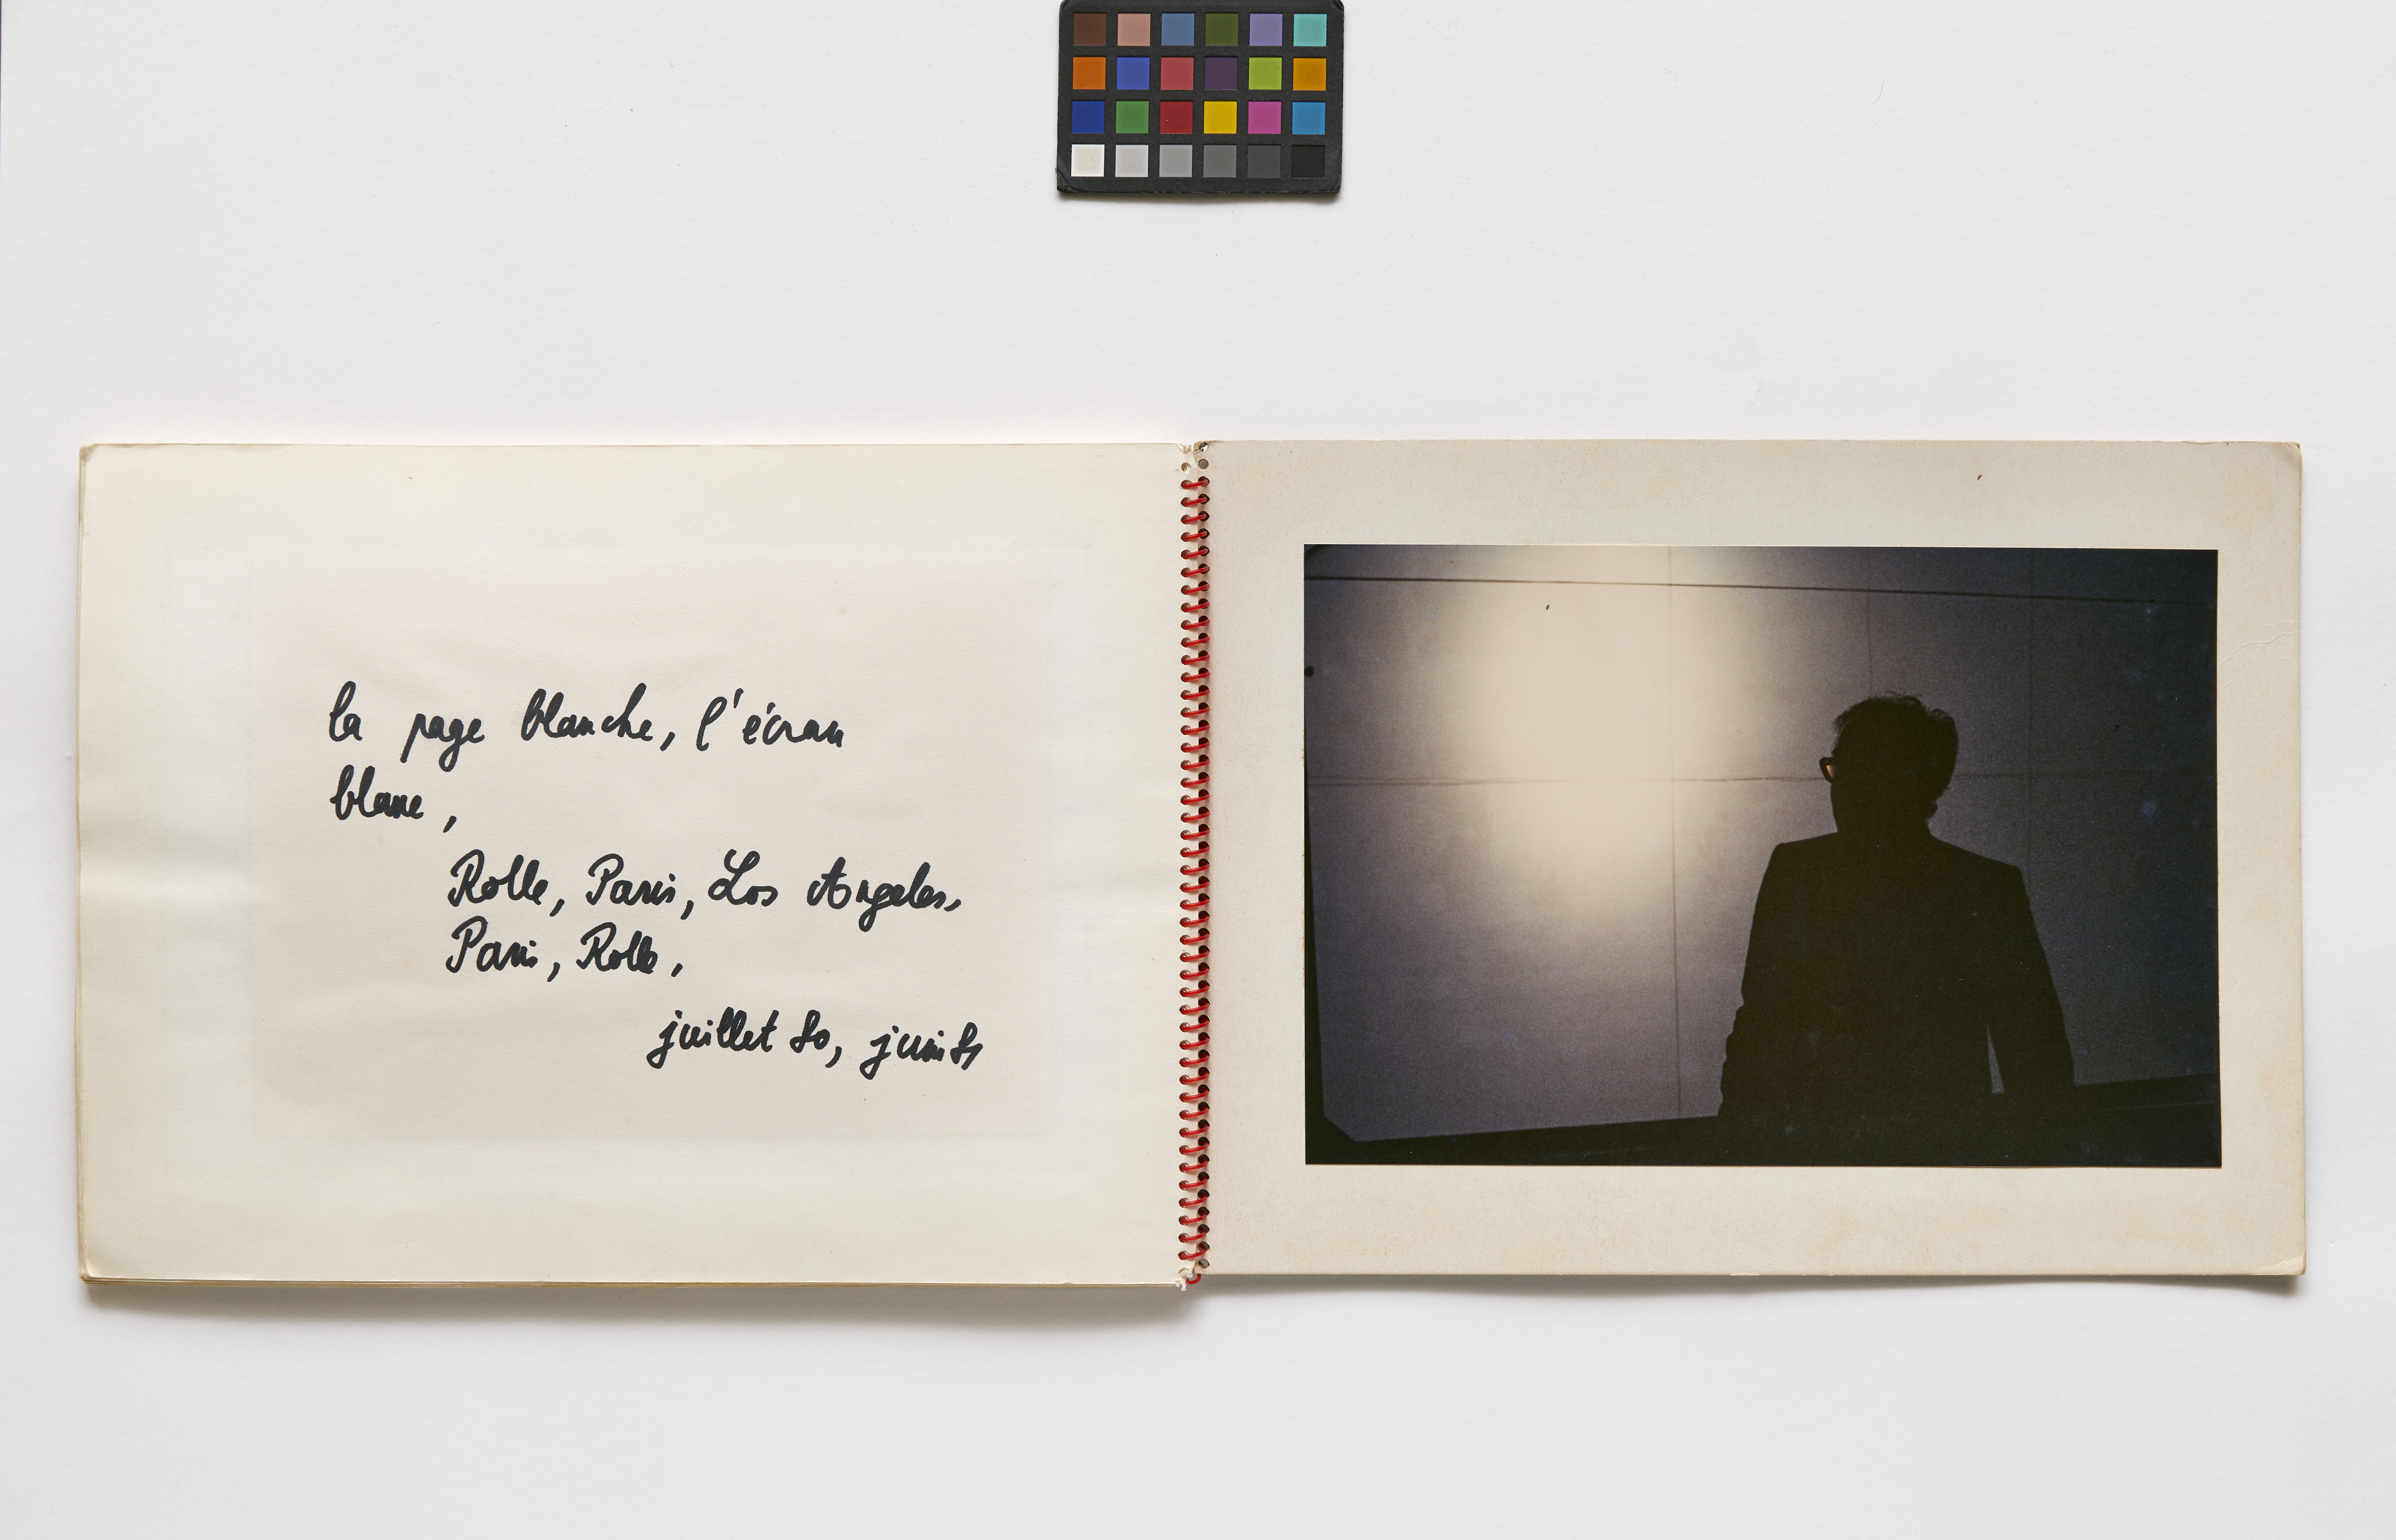 la page blanche, l'écran
blanc,
Rolle, Paris, Los Angeles,
Paris, Rolle,
juillet 80, juin 81